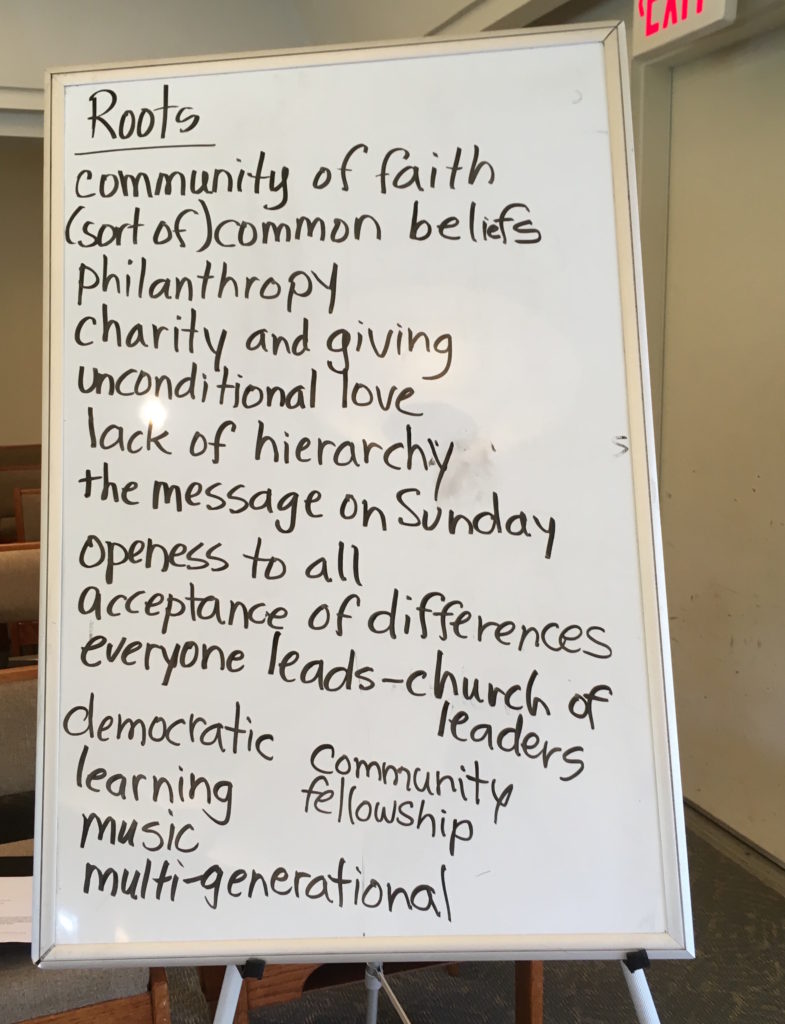 EXIT
Roots
community of faith
(sort of) common beliefs
philanthropy
charity and giving
unconditional love
lack of hierarchy
the message on Sunday
openess to all
acceptance of differences
everyone leads-church of
leaders
democratic
learning
music
multi-generational
community
fellowship
s